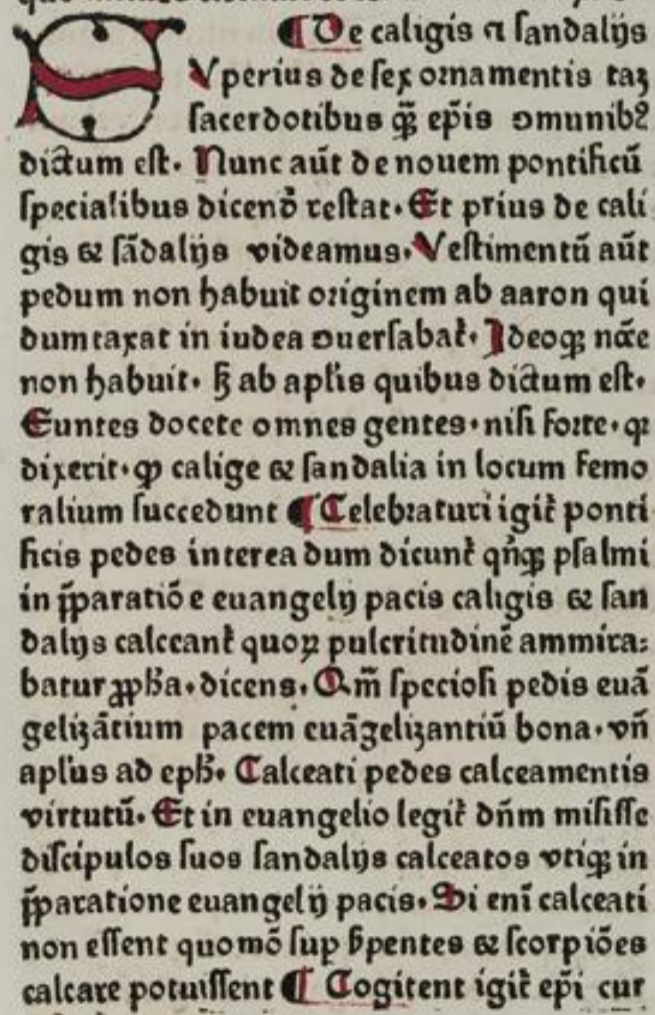 ¶ De caligis ⁊ sandalijs
SVperius de sex ornamentis taʒ
sacerdotibus qͣ̃ ep̃is ꝯmunibꝰ
dictum est. Nunc aūt de nouem pontificū
specialibus dicenđ restat. Et prius de cali
gis & sādalijs videamus. Vestimentū aūt
pedum non habuit originem ab aaron qui
dumtaxat in iudea ꝯuersabat̃. Ideoqꝫ nc̄ce
non habuit. ẜ ab apl̓is quibus dictum est.
Euntes docete omnes gentes. nisi forte. qꝛ
dixerit. ꝙ calige & sandalia in locum femo
ralium succedunt ¶ Celebraturi igit̃ ponti
ficis pedes interea dum dicunt̃ qñqꝫ psalmi
in p̄paratiōe euangelij pacis caligis & san
dalijs calceant̃ quoꝝ pulcritudinē ammira:
batur ꝓph̄a. dicens. Qm̃ speciosi pedis euā
gelizātium pacem euāgelizantiū bona. vñ
apl̓us ad eph̄. Calceati pedes calceamentis
virtutū. Et in euangelio legit̃ dñm misisse
discipulos suos sandalijs calceatos vtiqꝫ in
p̄paratione euangelij pacis. Si eni calceati
non essent quomō sup s̄pentes & scorpiōes
calcare potuissent ¶ Cogitent igit̃ ep̃i cur